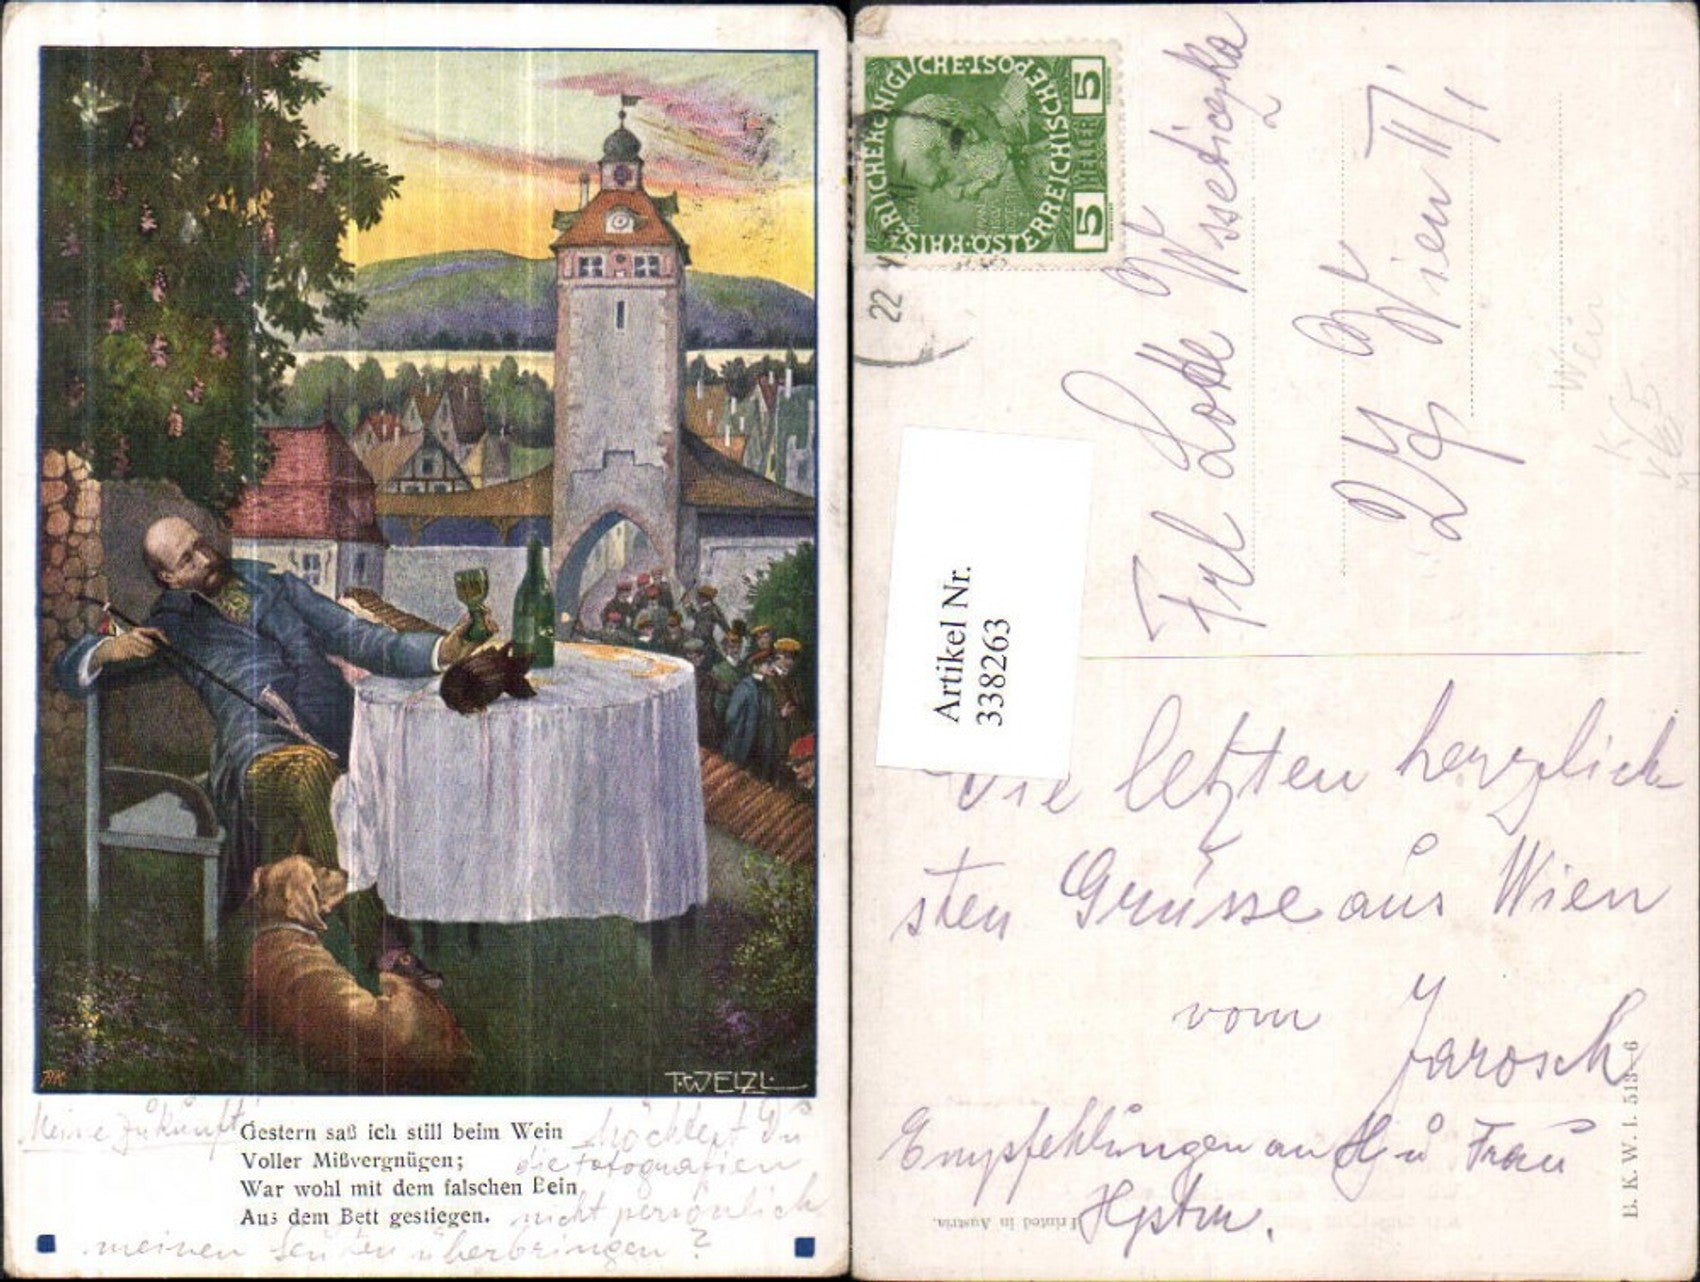 T. WELZL
Meine Zukunft
Gestern saß ich still beim Wein
Voller Mißvergnügen;
War wohl mit dem falschen Bein
Aus dem Bett gestiegen.
Möchtest Du
die Fotografien
nicht persönlich
meinen Leuten überbringen?
KAISERLICHE KÖNIGLICHE ÖSTERREICHISCHE POST
5 HELLER 5
22
Frl Lotte
Wien II/1
Wein
Artikel Nr.
338263
Die letzten herzlich-
sten Grüsse aus Wien
vom Jarosch
Empfehlungen an H. u Frau
Hptm.
Printed in Austria.
B. K. W. I. 513-6